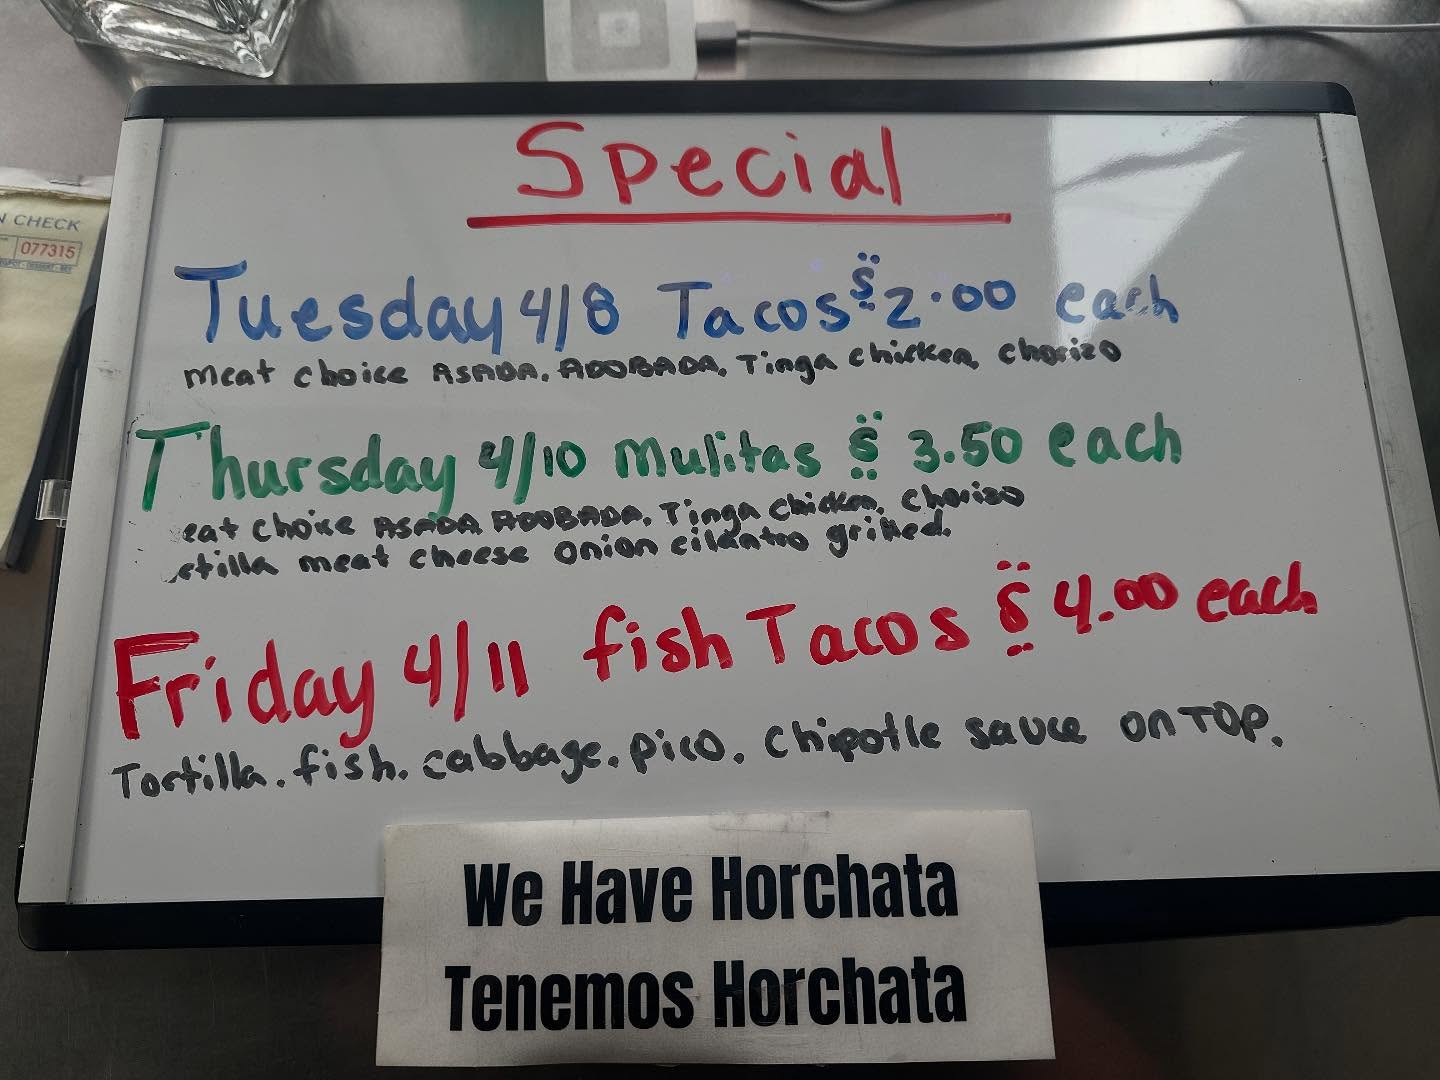 Special
Tuesday 4/8 Tacos $2.00 each
meat choice ASADA. ADOBADA. Tinga chicken, chorizo
Thursday 4/10 Mulitas $ 3.50 each
eat choice ASADA ADOBADA. Tinga chicken, chorizo
rtilla meat cheese onion cilantro grilled.
Friday 4/11 fish Tacos $ 4.00 each
Tortilla. fish. cabbage. pico. Chipotle sauce on TOP.
We Have Horchata
Tenemos Horchata
N CHECK
077315